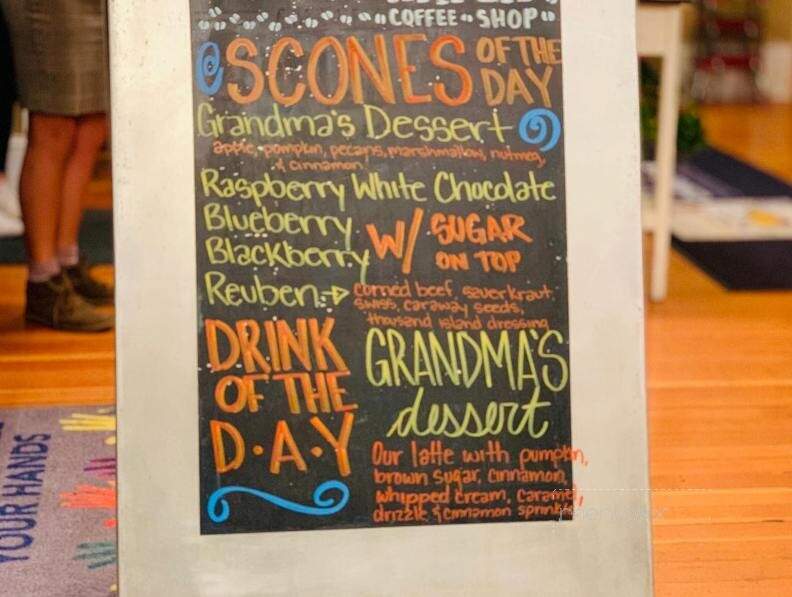 COFFEE SHOP
SCONES OF THE DAY
Grandma's Dessert
apple, pumpkin, pecans, marshmallow, nutmeg,
& cinnamon
Raspberry White Chocolate
Blueberry
Blackberry
W/ SUGAR
ON TOP
Reuben
corned beef, sauerkraut,
swiss, caraway seeds,
thousand island dressing
DRINK
OF THE
D·A·Y
GRANDMA'S
dessert
Our latte with pumpkin,
brown sugar, cinnamon,
whipped cream, caramel,
drizzle & cinnamon sprinkles
YOUR HANDS